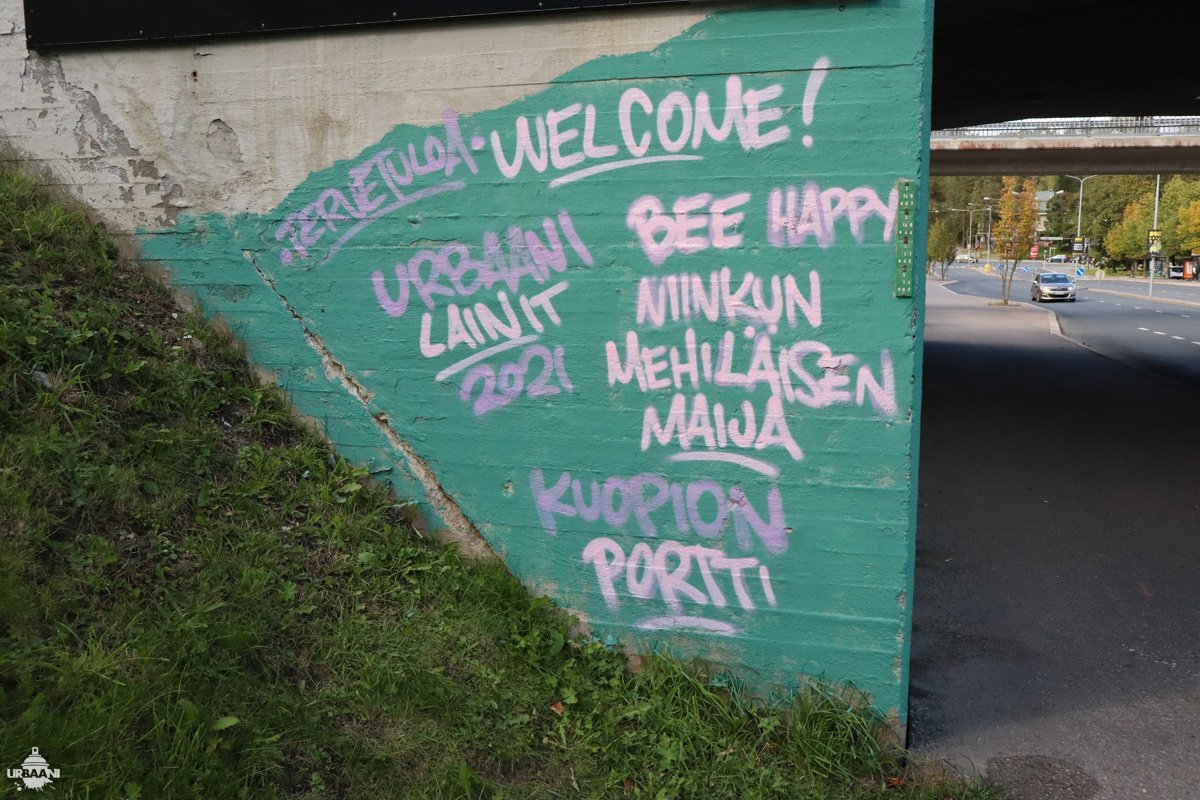 TERVETULOA · WELCOME!
URBAANI
LAINIT
2021
BEE HAPPY
MINKUN
MEHILÄISEN
MAIJA
KUOPION
PORTTI
URBAANI